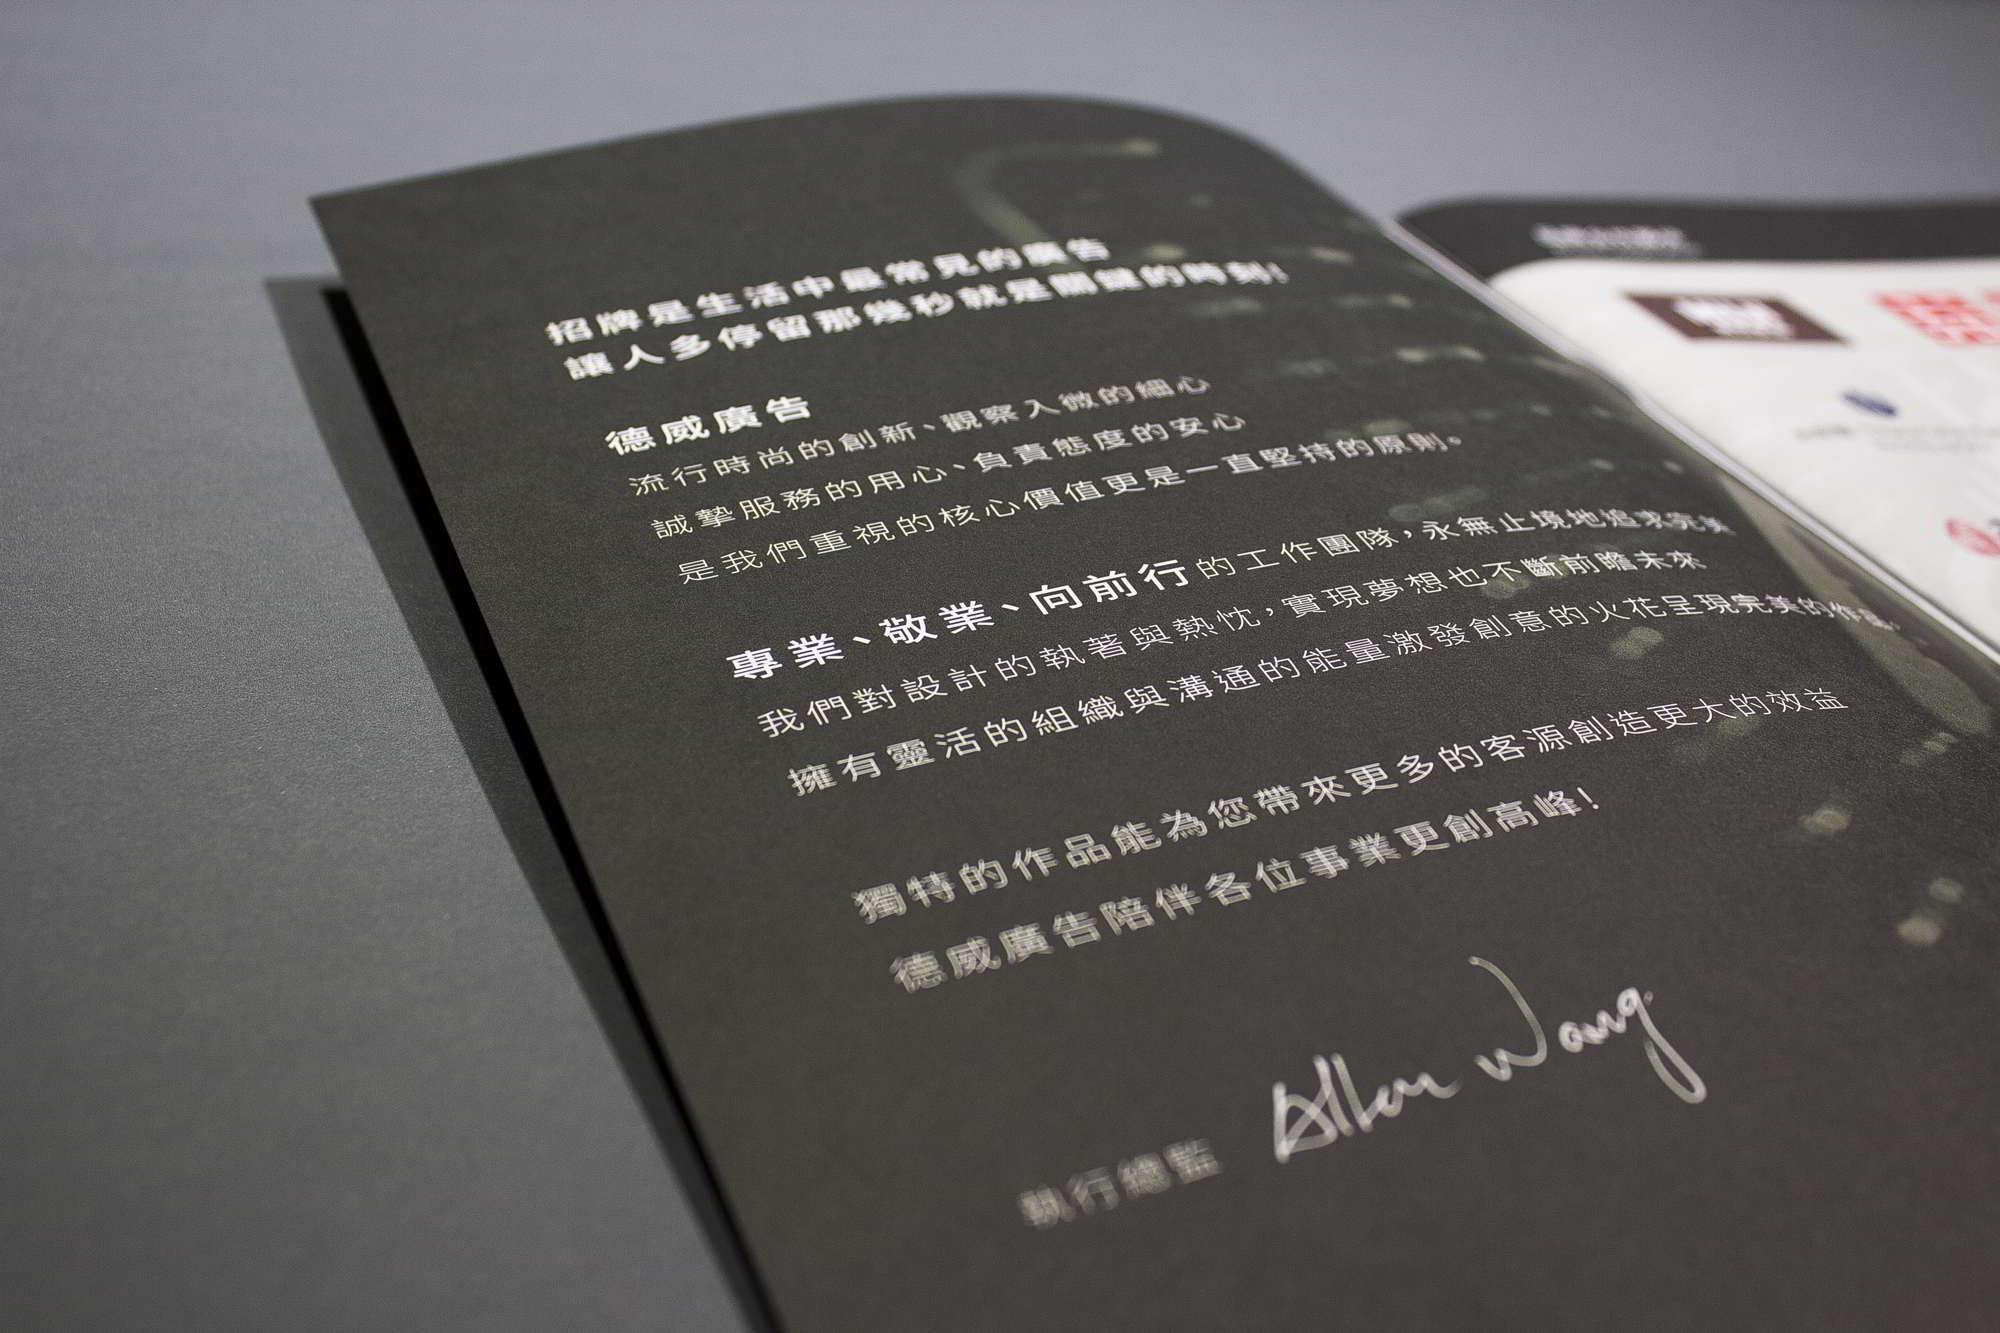 招牌是生活中最常見的廣告
讓人多停留那幾秒就是關鍵的時刻!
德威廣告
流行時尚的創新、觀察入微的細心
誠摯服務的用心、負責態度的安心
是我們重視的核心價值更是一直堅持的原則。
專業、敬業、向前行的工作團隊,永無止境地追求完美
我們對設計的執著與熱忱,實現夢想也不斷前瞻未來
擁有靈活的組織與溝通的能量激發創意的火花呈現完美的作品。
獨特的作品能為您帶來更多的客源創造更大的效益
德威廣告陪伴各位事業更創高峰!
執行總監 Allen Wang